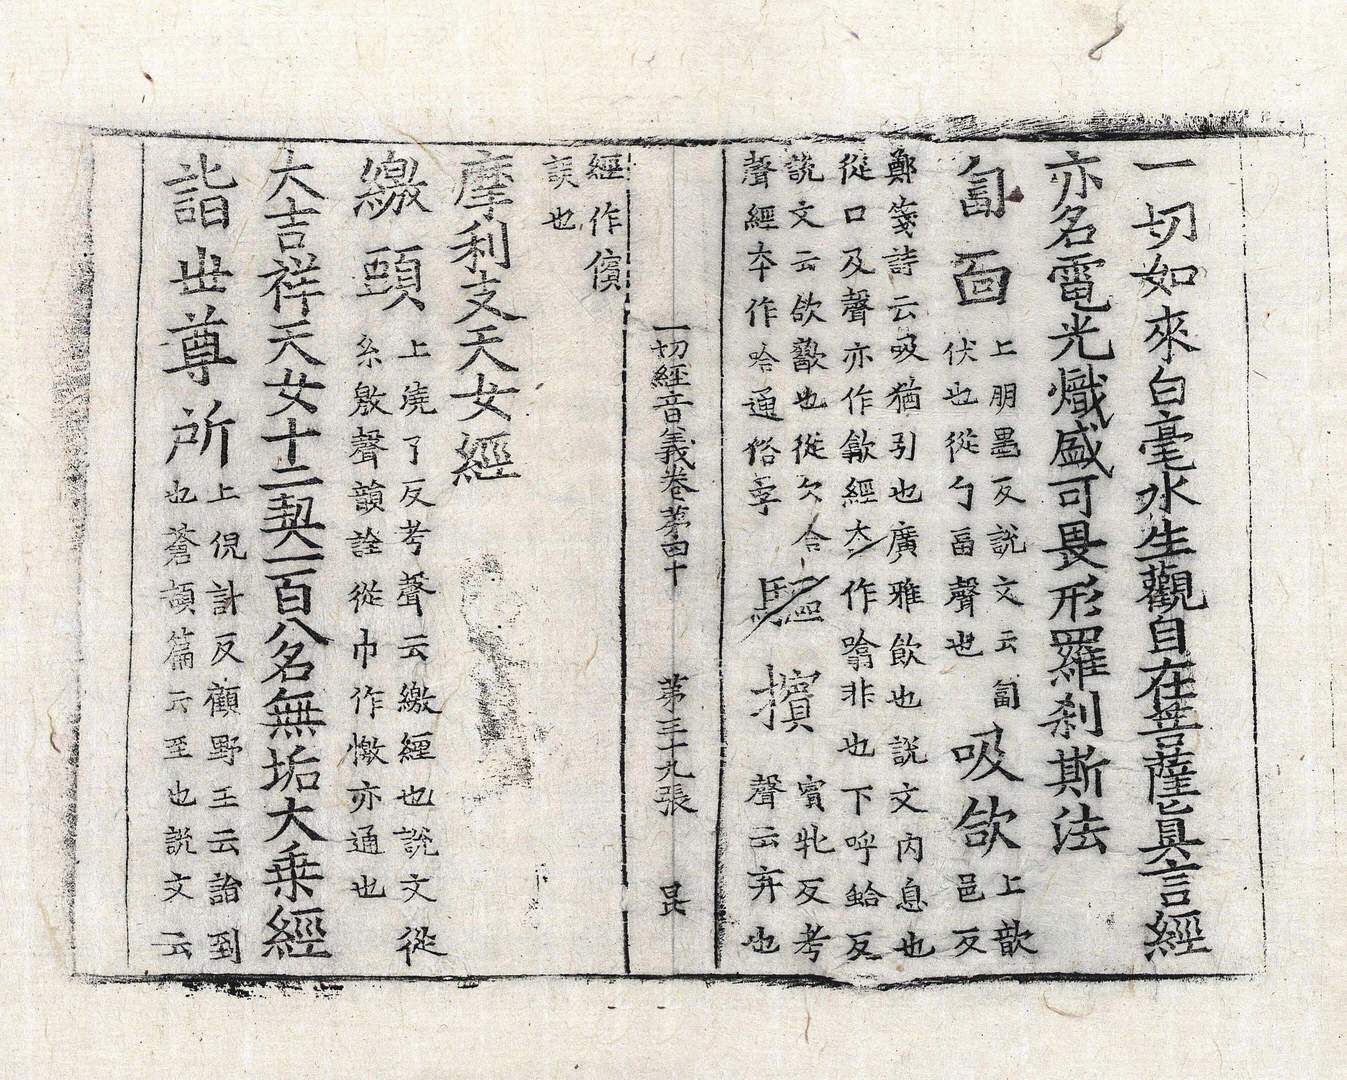 一切如來白毫水生觀自在菩薩眞言經
亦名電光熾盛可畏形羅刹斯法
匐面
上朋墨反說文云匐
伏也從勹畐聲也
吸欱
上歆邑反
鄭箋詩云吸猶引也廣雅飲也說文內息也
從口及聲亦作歙經本作噏非也下呼蛤反
說文云欱歠也從欠合
聲經本作哈通俗字
驅擯
賓牝反考
聲云弃也
經作儐
誤也
一切經音義卷苐四十 苐三十九張 昆
摩利支天女經
繳頭
上澆了反考聲云繳經也說文從
糸敫聲韻詮從巾作憿亦通也
大吉祥天女十二契一百八名無垢大乘經
詣世尊所
上倪計反顧野王云詣到
也蒼頡篇云至也說文云